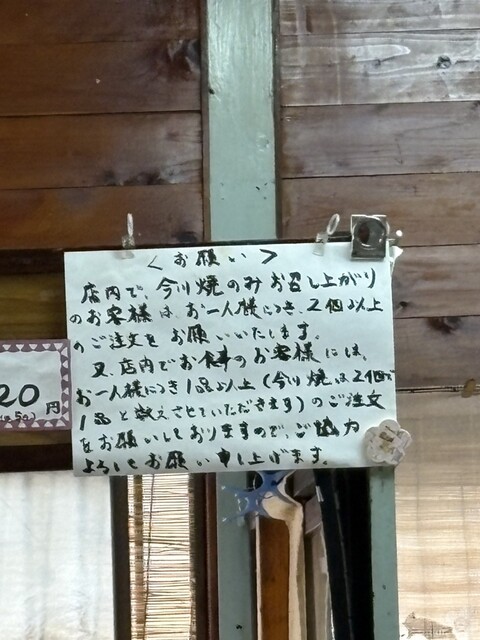 <お願い>
店内で今川焼のみお召し上がり
のお客様は、お一人様につき、2個以上
のご注文をお願いいたします。
又、店内でお食事のお客様には、
お一人様につき1品以上(今川焼は2個で
1品と数えさせていただきます)のご注文
をお願いしておりますので、ご協力
よろしくお願い申し上げます。
20円